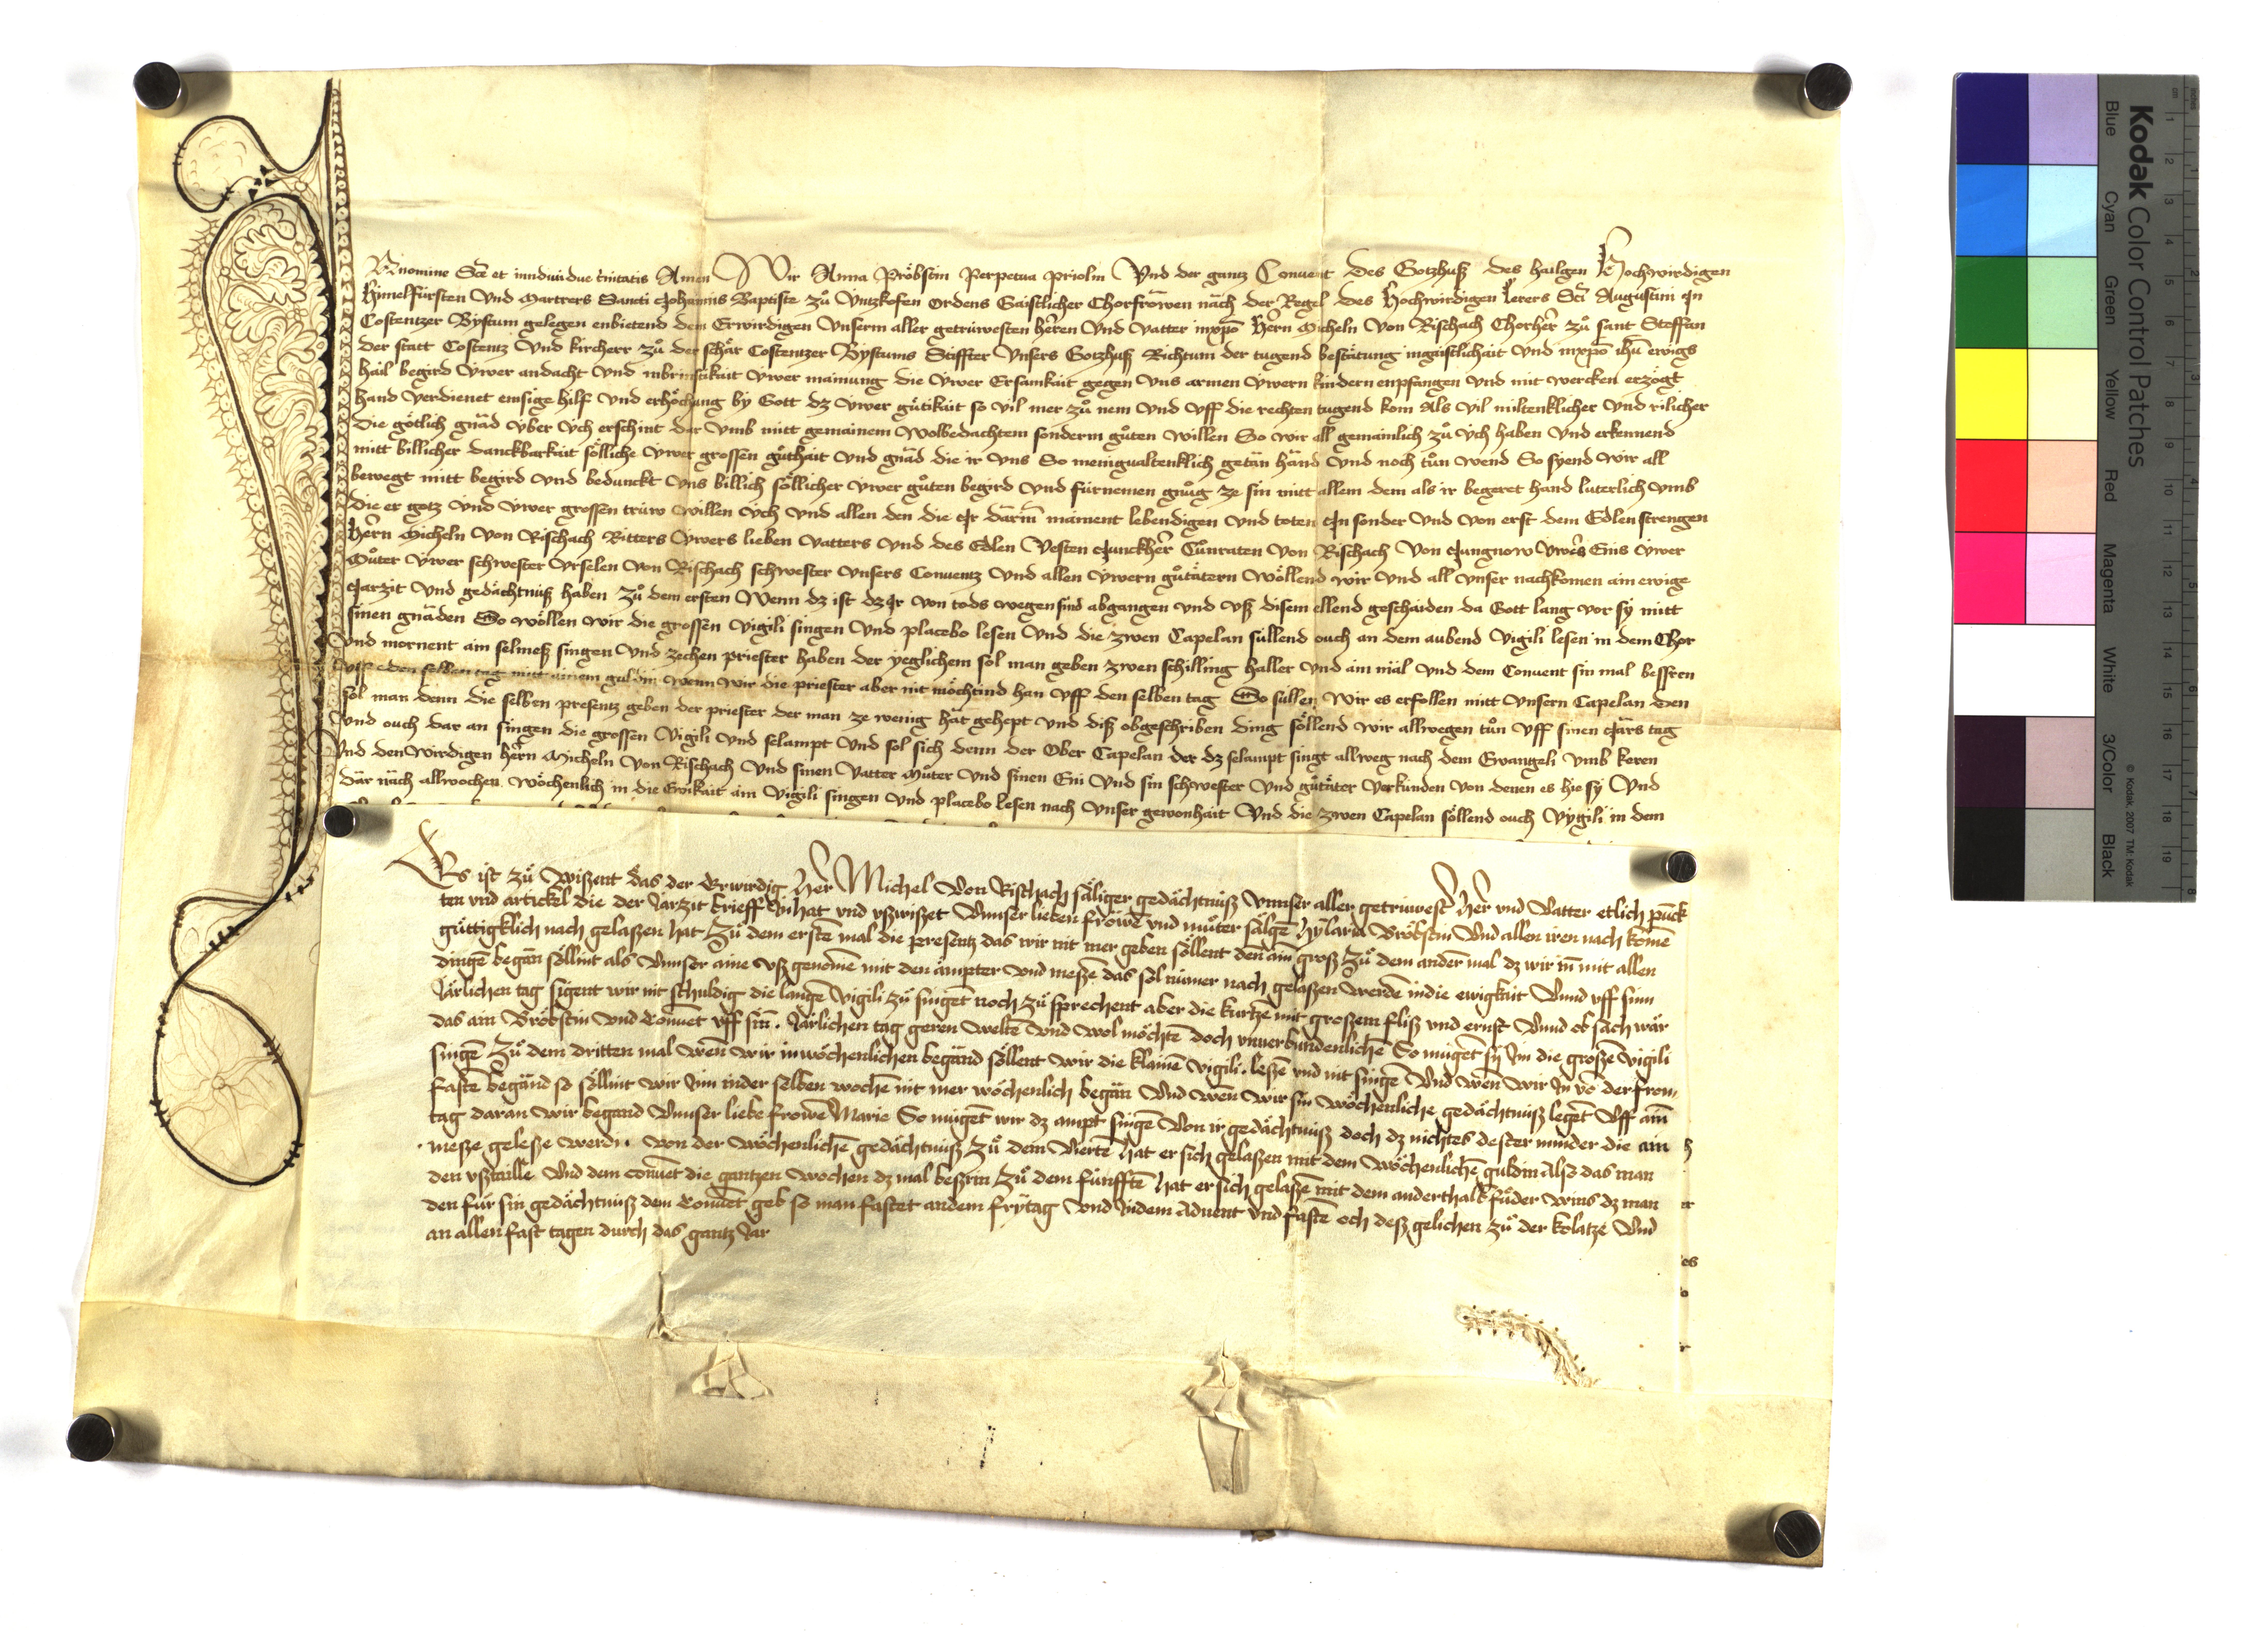 Innomine Sc̄e et inndiuidue t̄initatis Amen Wir Anna Pröbstin Perpetua priolin Vnd der gantz Conuent des Gotzhuß des hailgen Hochwirdigen
Himelfürsten Vnd Martrers Sancti Johannis Baptiste zů Vntzkofen Ordens Gaistlicher Chorfröwen näch der Regel des Hochwirdigen Lerers Sc̄i Augustini In
Costentzer Bystum gelegen enbietend dem Erwirdigen Vnserm aller getrüwesten heren Vnd Vatter inxp̄o Hern Micheln Von Rischach Chorher zů sant Steffan
der statt Costentz Vnd kircherr zů der schär Costentzer Bystums Stiffter Vnsers Gotzhuß Richtum der tugend bestätung ingaistlichait Vnd inxp̄o ih̄u ewigs
hail begird Vwer andacht Vnd inbrinstikait Vwer mainung die Vwer Ersamkait gegen Vns armen Vwern kindern enpfangen Vnd mit wercken erzögt
hand Verdienet emsige hilf Vnd erhöchung by Gott dz Vwer gütikait so vil mer zů nem Vnd Vff die rechten tugend kom Als vil miltenklicher Vnd rilicher
Die götlich gnäd Vber Vch erschint dar Vmb mitt gemainem Wolbedachtem sonderm gůten willen So wir all gemainlich zů Vch haben Vnd erkennend
mitt billicher danckbarkait sölliche Vwer grossen gůthait Vnd gnäd die ir Vns So menigualtenklich getän händ Vnd noch tůn wend So syend wir all
bewegt mitt begird Vnd bedunckt Vns billich söllicher Vwer gůten begird Vnd fürnemen gnůg ze sin mitt allem dem als ir begeret hand luterlich Vmb
die er gotz Vnd Vwer grossen trüw willen Vch Vnd allen den die Ir darin mainent lebendigen Vnd toten In sonder Vnd von erst dem Edlen strengen
Hern Micheln Von Rischach Ritters Vwers lieben Vatters Vnd des Edlen Vesten Junckher Cůnraten Von Rischach Von Jungnow Vwers Enis Vwer
Můter Vwer schwester Vrselen Von Rischach schwester Vnsers Conuentz Vnd allen Vwern gůtätern Wöllend wir Vnd all Vnser nachkomen ain ewige
Jarzit Vnd gedächtnuß haben Zů dem ersten Wenn dz ist dz Ir Von tods wegen sind abgangen Vnd Vß disem ellend geschaiden da Gott lang vor sy mitt
sinen gnäden So wöllen wir die grossen Vigili singen Vnd placebo lesen Vnd die zwen Capelan süllend ouch an dem aubend Vigili lesen in dem Chor
Vnd mornent ain selmeß singen Vnd zechen priester haben der yeglichem sol man geben zwen schilling haller Vnd ain mäl Vnd dem Conuent sin mal bessren
Vff eden selben tag mitt ainem guldin wenn wir die priester aber nit möchtind han Vff den selben tag So süllen Wir es erfollen mitt Vnsern Capelan den
sol man denn die selben presentz geben der priester der man ze wenig hät gehept Vnd diß obgeschriben ding söllend wir allwegen tůn Vff sinen Järs tag
Vnd ouch dar an singen die grossen Vigili Vnd selampt Vnd sol sich denn der Ober Capelan der dz selampt singt allweg nach dem Ewangeli Vmb keren
Vnd den wirdigen hern Micheln Von Rischach Vnd sinen Vatter Můter Vnd sinen Eni Vnd sin schwester Vnd gůtäter Verkünden Von denen es hie sy Vnd
dar näch allwochen wöchenlich in die Ewikait ain Vigili singen Vnd placebo lesen nach Vnser gewonhait Vnd die zwen Capelan söllend ouch Vygili in dem
Es ist zů wißent das der Erwirdig Her Michel Von Rischach säliger gedächtnüß Vnnser aller getrüwest Her vnd Vatter etlich punck
ten vnd artickel die der Jarzit brieff Inhat vnd vßwißet Vnnser lieben fröwē vnd můter sälgē Hylaria Bröbstin Vnd allen iren nach komē
güttigklich nach gelaßen hat Zů dem erstē mal die presentz das wir nit mer geben söllent den ain groß Zů dem anderm mal dz wir in̄ mit allen
dingē begān söllint als Vnnser aine vß genomē mit den ämpter Vnd meßē das sol nimer nach gelaßen werdē indie ewigkait Vnnd vff sinn
Järlichen tag sigent wir nit schuldig die langē Vigili zů singēt noch zů sprechent aber die kurtzē mit großem fliß vnd ernst Vnnd ob sach wär
das ain Bröbstin Vnd Conuēt vff sin̄. Järlichen tag geren weltē Vnd wol möchtē doch vnuerbundenlichē So mugēt sy Im die großē Vigili
singē Zů dem dritten mal wen̄ wir inwöchenlichen begänd söllent wir die klainē Vigili. leßē vnd nit singē Vnd wen̄ wir In vō der fron,
fastē begänd so söllint wir Im inder selben wochē nit mer wöchenlich begän Vnd wen̄ wir sin wöchenliche gedächtnüß legēt Vff ain̄
tag daran wir begand Vnnser liebe frowē Marie So mugēt wir dz ampt singē Von ir gedächtnüß doch dz nichtes dester minder die ain
meße geleße werdi. von der wöchenlichē gedächtnüß Zů dem Viertē hat er sich gelaßen mit dem wöchenlichē guldin Also das man
den vßtaille Vnd dem conuēt die gantzen wochen dz mal beßrin Zů dem fünfftē hat er sich gelaßē mit dem anderthalb fůder wins dz man
den für sin gedächtnüß dem Conuēt geb so man fastet andem frytag Vnd Indem Aduent vnd fastē och deß gelichen zů der kolatze Vnd
an allen fast tagen durch das gantz Jar